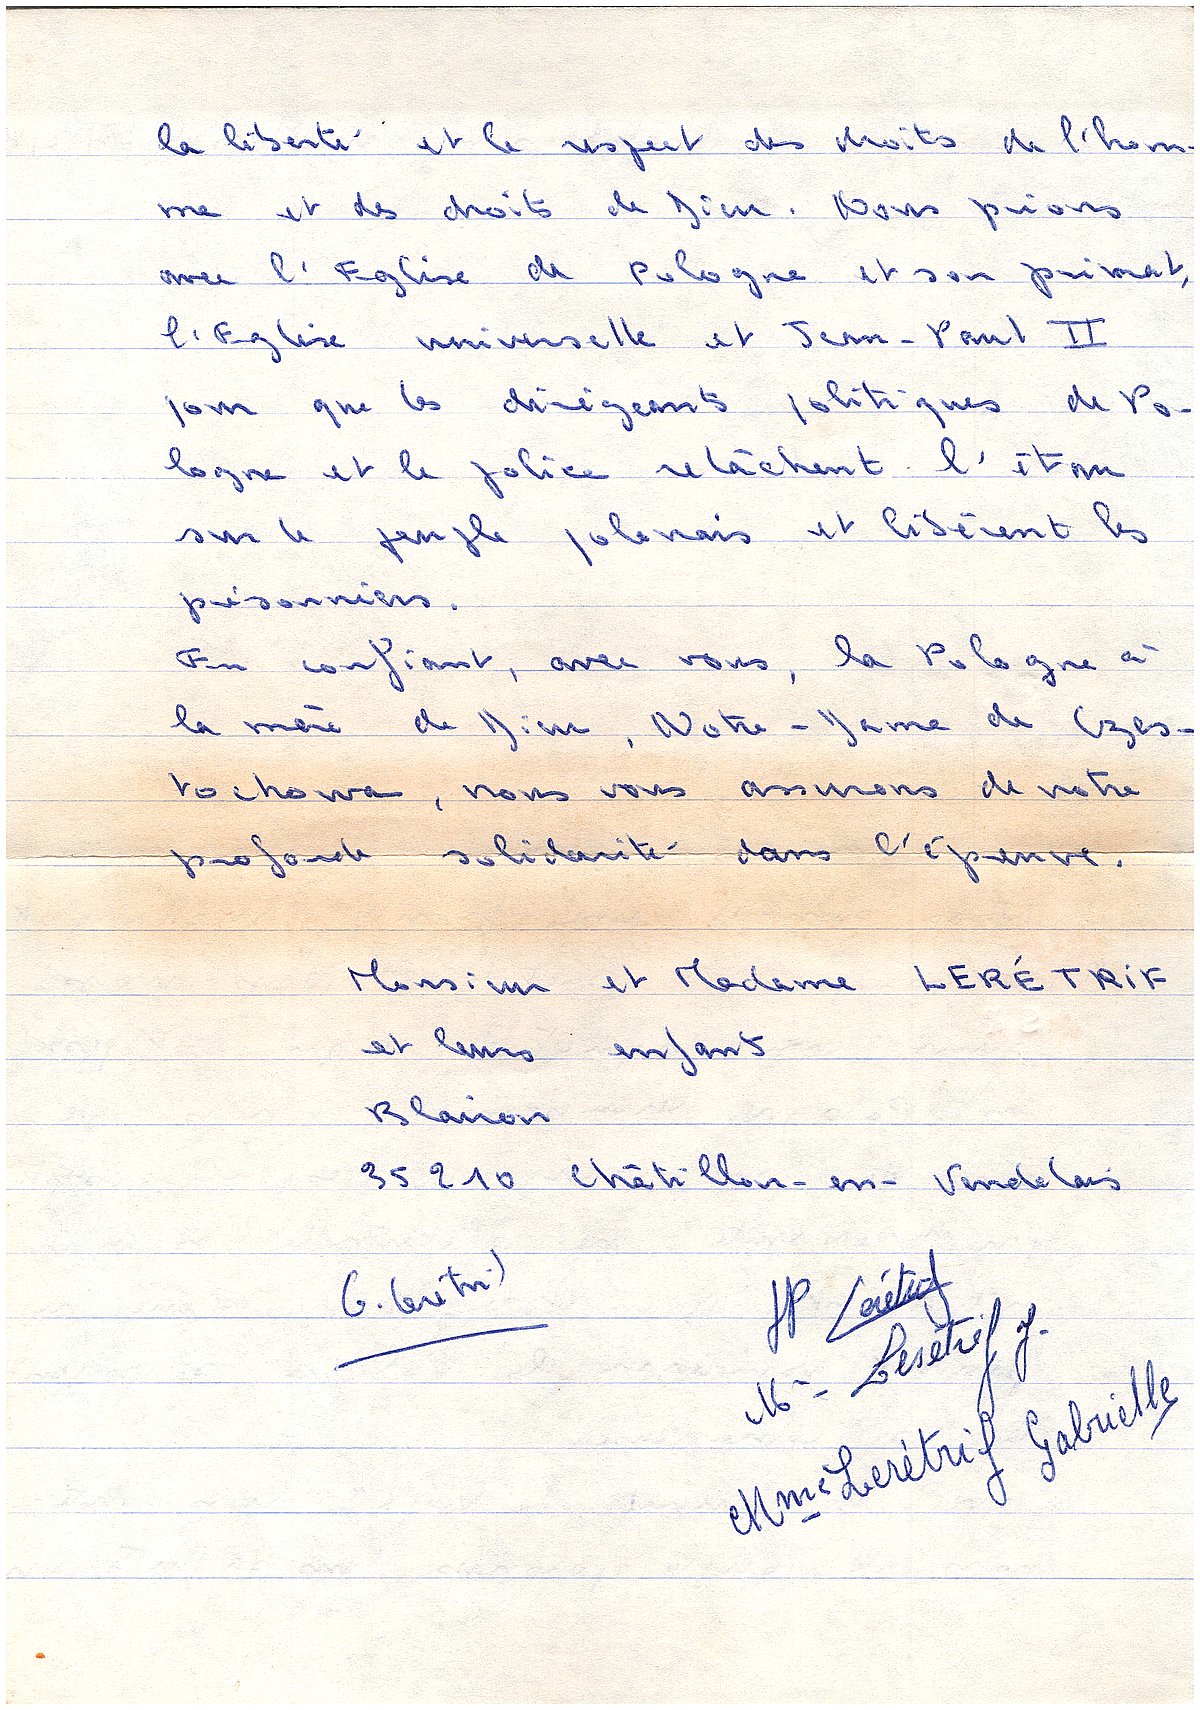 la liberté et le respect des droits de l'hom-
me et des droits de Dieu. Nous prions
avec l'Eglise de Pologne et son primat,
l'Eglise universelle et Jean-Paul II
pour que les dirigeants politiques de Po-
logne et la police relâchent l'étau
sur le peuple polonais et libèrent les
prisonniers.
En confiant, avec vous, la Pologne à
la mère de Dieu, Notre-Dame de Czes-
tochowa, nous vous assurons de notre
profonde solidarité dans l'épreuve.
Monsieur et Madame LERÉTRIF
et leurs enfants
35210 Châtillon-en-Vendelais
G. Lerétrif
JP Lerétrif
Mr Lerétrif J.
Mme Lerétrif Gabrielle